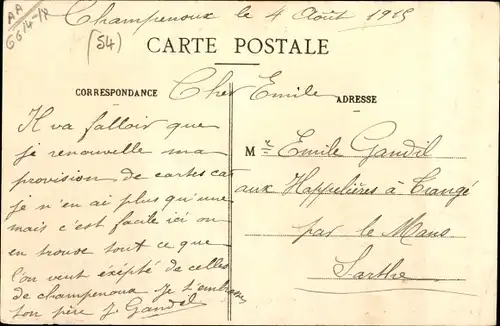 AA
6614-18
Champenoux le 4 Août 1915
(54)
CARTE POSTALE
CORRESPONDANCE
Cher Emile
ADRESSE
Il va falloir que
je renouvelle ma
provision de cartes car
je n'en ai plus qu'une
mais c'est facile ici on
en trouve tout ce que
l'on veut éxépté de celles
de champenoux Je t'embrasse
ton père J Gandil
Mr Emile Gandil
aux Happelières à Trangé
par le Mans
Sarthe